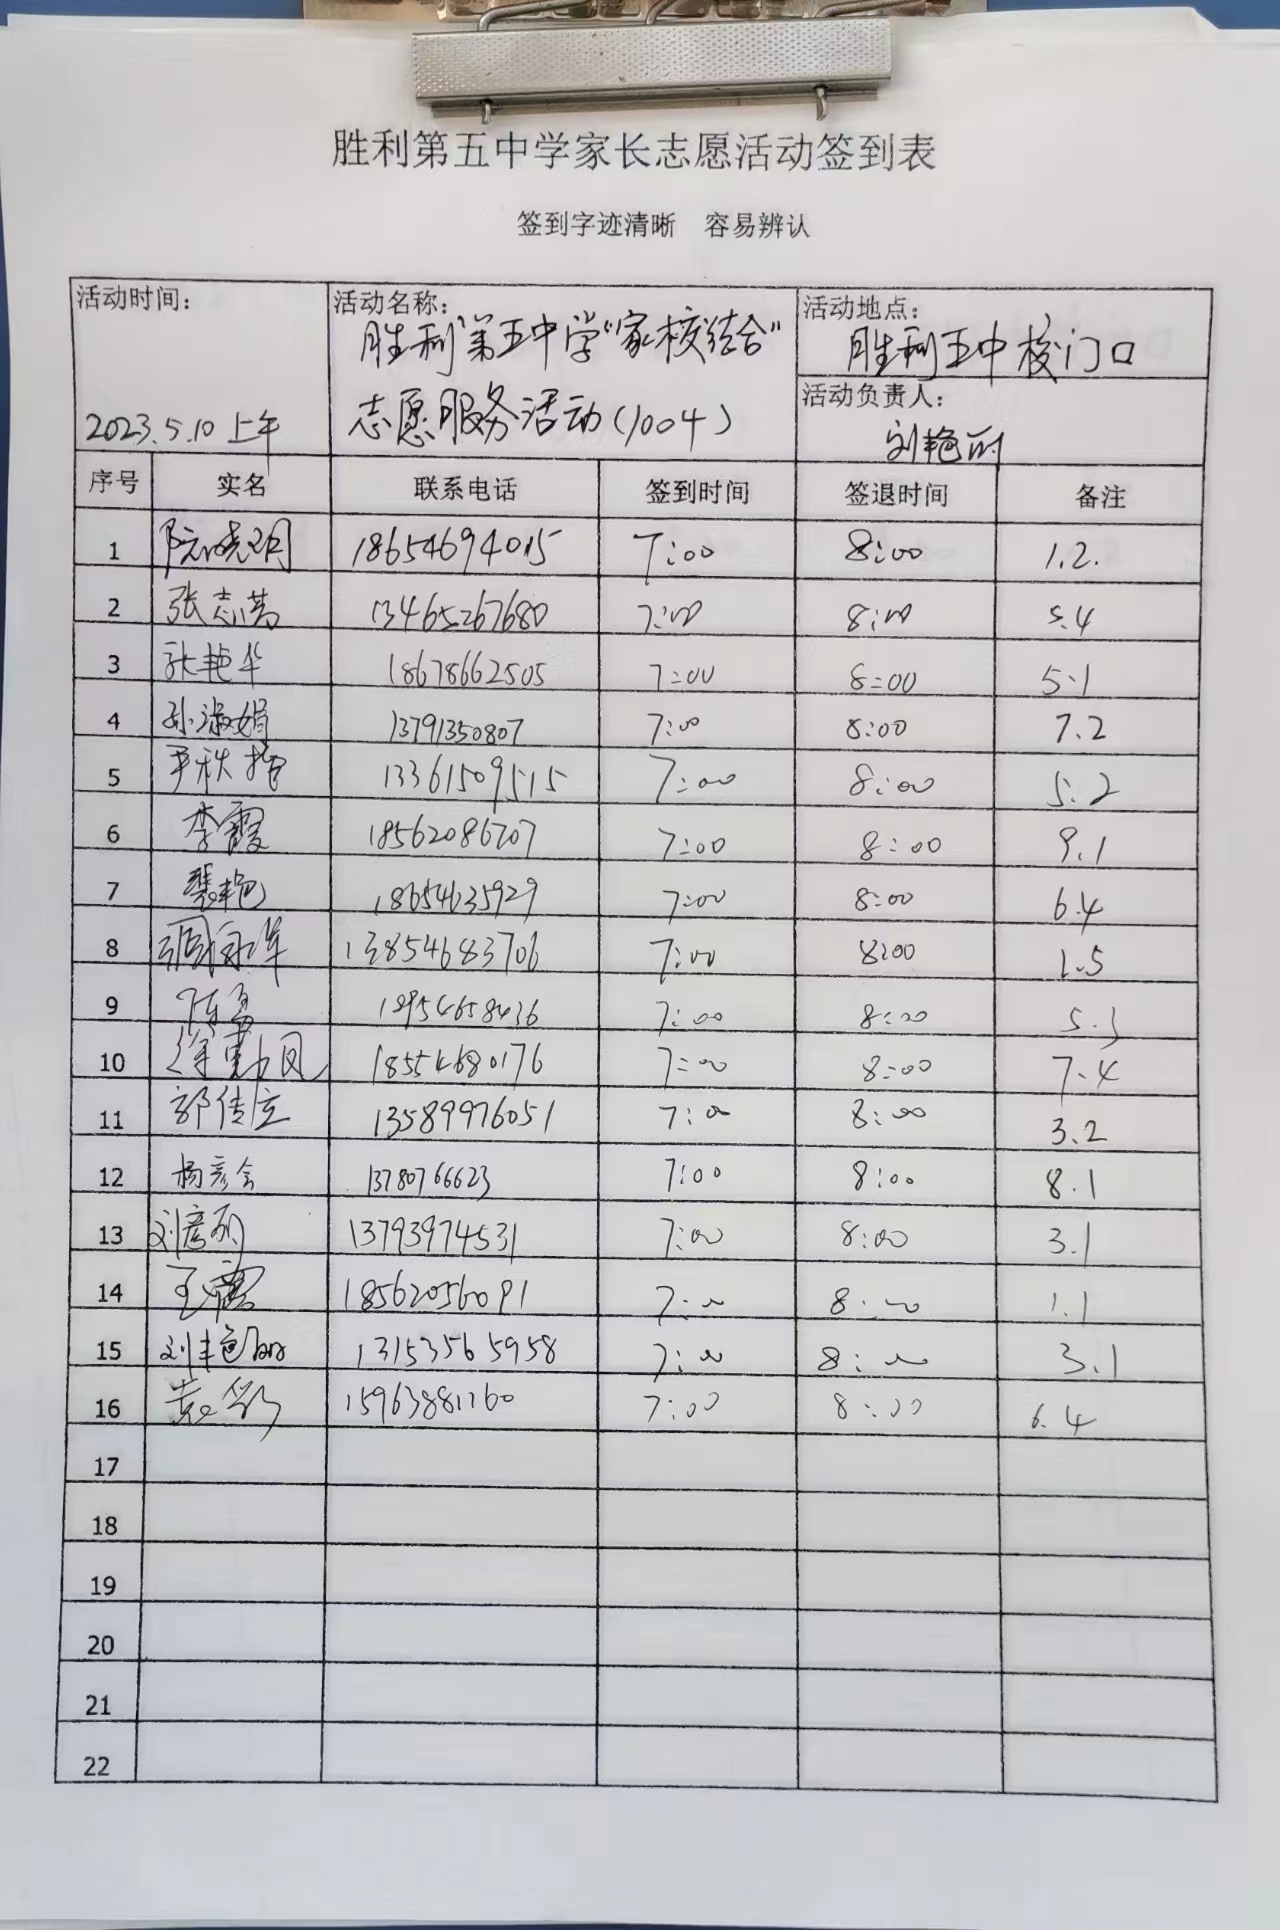 胜利第五中学家长志愿活动签到表
签到字迹清晰 容易辨认
活动时间: 2023.5.10上午
活动名称: 胜利第五中学"家校结合"
志愿服务活动(1004)
活动地点: 胜利五中校门口
活动负责人: 刘艳丽
序号 实名 联系电话 签到时间 签退时间 备注
1 阮晓玥 18654694015 7:00 8:00 1.2.
2 张志芳 13465267680 7:00 8:00 5.4
3 张艳华 18678662505 7:00 8:00 5.1
4 孙淑娟 13791350807 7:00 8:00 7.2
5 13361509515 7:00 8:00 5.2
6 李霞 18562086707 7:00 8:00 9.1
7 裴艳 18654635929 7:00 8:00 6.4
8 13854683706 7:00 8:00 1.5
9 陈勇 18954658436 7:00 8:00 5.3
10 18554680176 7:00 8:00 7.4
11 郭传 13589976051 7:00 8:00 3.2
12 杨彦会 13780766623 7:00 8:00 8.1
13 刘彦 13793974531 7:00 8:00 3.1
14 王霞 18562056091 7:00 8:00 1.1
15 刘艳丽 13153565958 7:00 8:00 3.1
16 15963881160 7:00 8:00 6.4
17
18
19
20
21
22